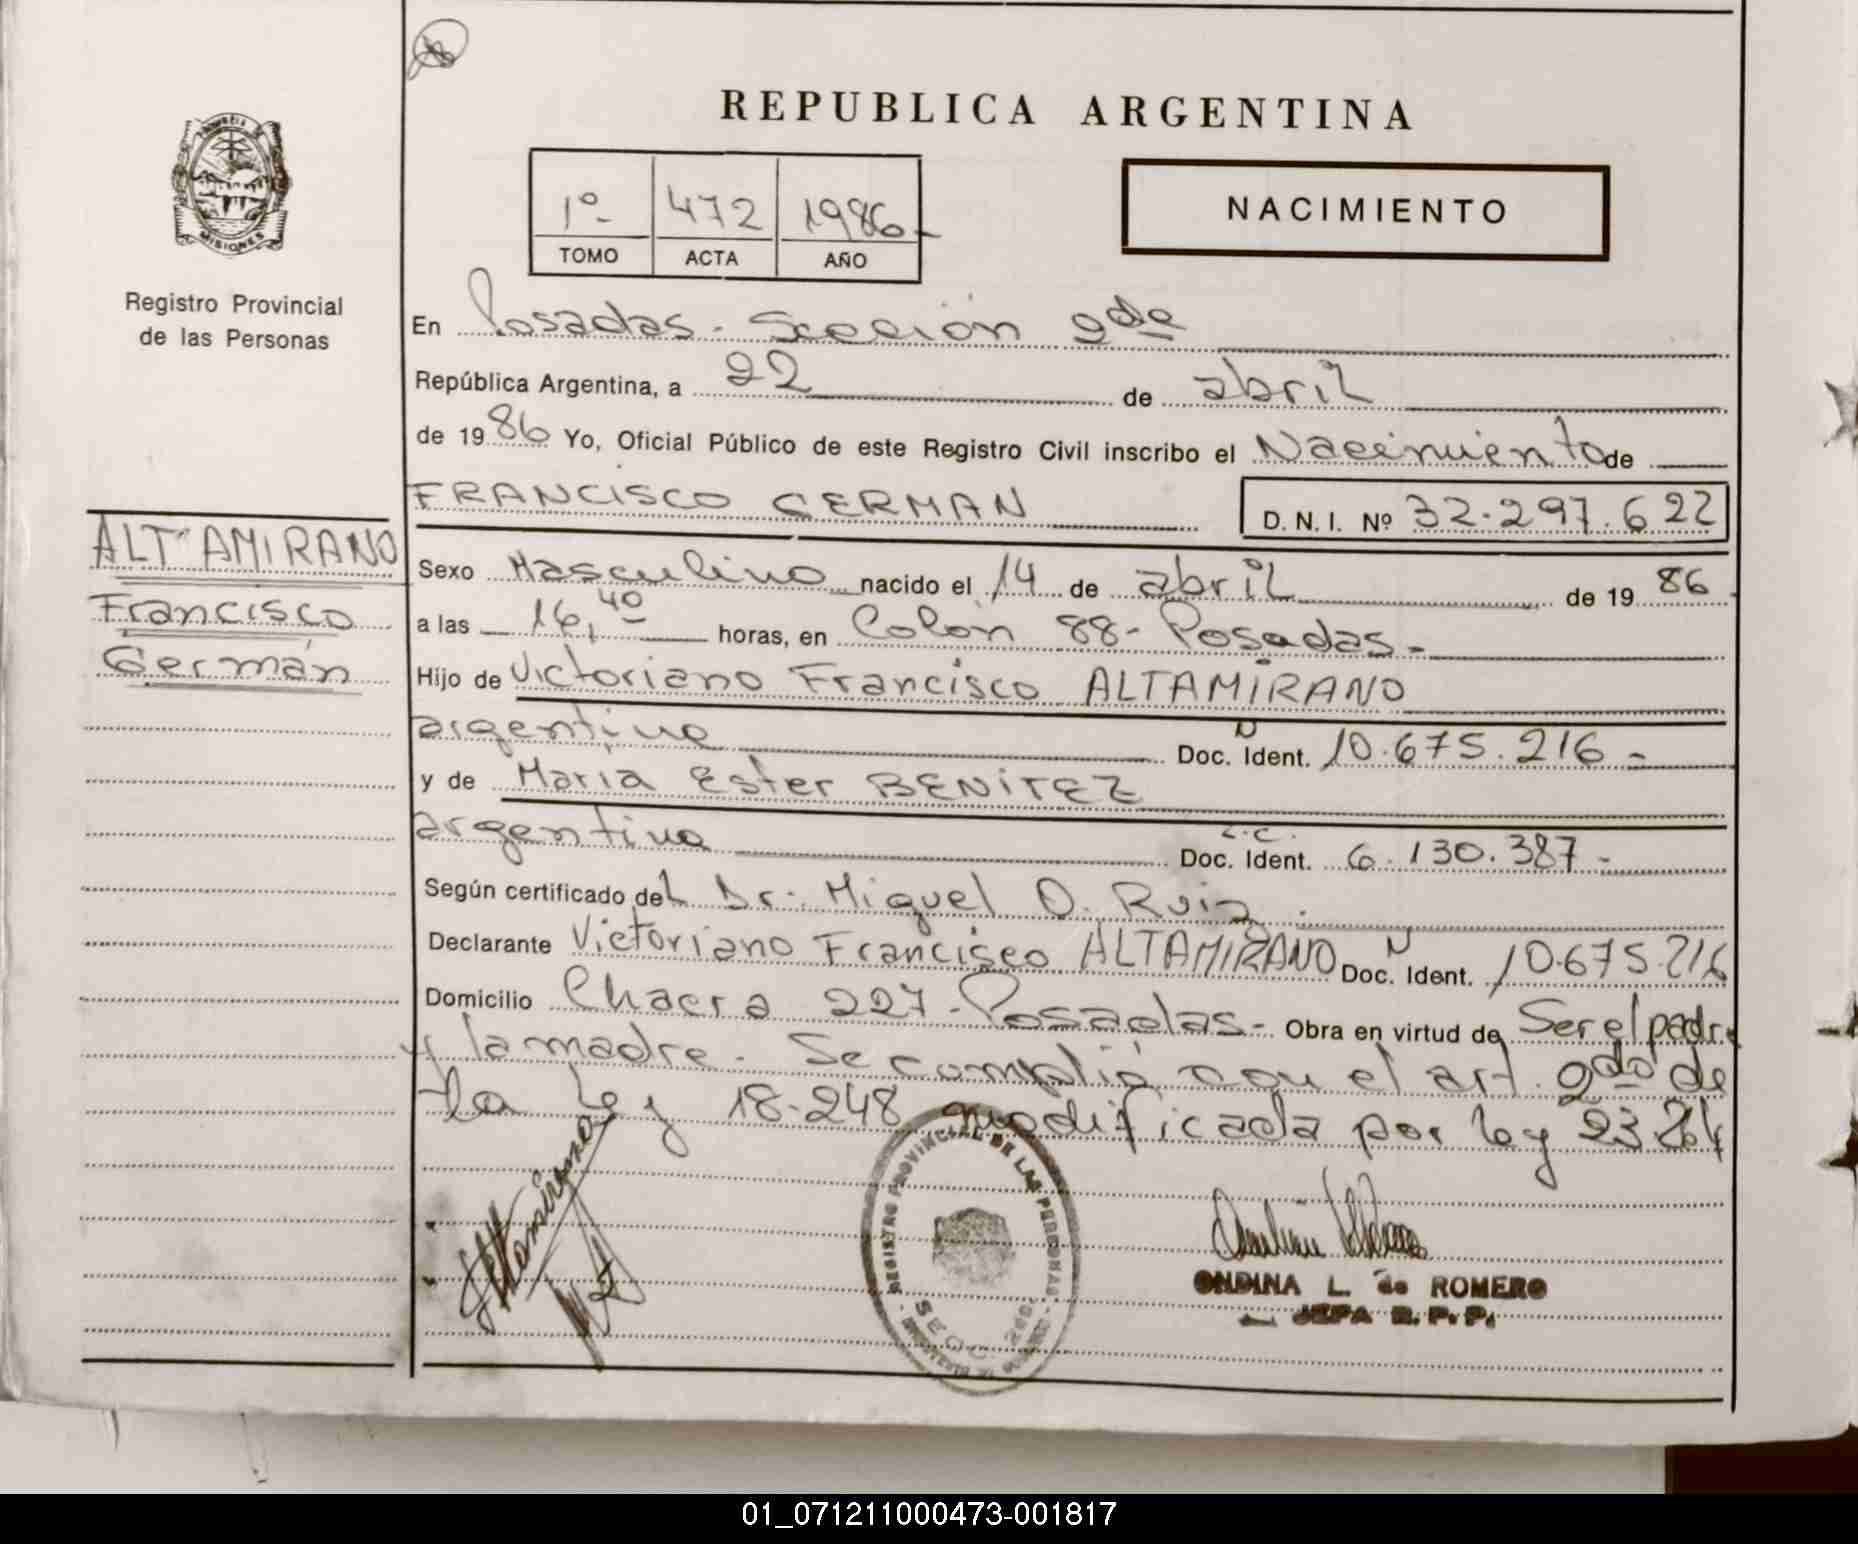 REPUBLICA ARGENTINA
MISIONES
Registro Provincial
de las Personas
1º 472 1986
TOMO ACTA AÑO
NACIMIENTO
En Posadas. Sección 2da
República Argentina, a 22 de abril
de 1986 Yo, Oficial Público de este Registro Civil inscribo el Nacimiento de
FRANCISCO GERMAN D. N. I. Nº 32.297.622
ALTAMIRANO
Francisco
Germán
Sexo Masculino nacido el 14 de abril de 1986
a las 16,40 horas, en Colón 88- Posadas-
Hijo de Victoriano Francisco ALTAMIRANO
argentino Doc. Ident. 10.675.216-
y de María Ester BENITEZ
argentina Doc. Ident. L.C. 6.130.387-
Según certificado del Dr. Miguel O. Ruiz
Declarante Victoriano Francisco ALTAMIRANO Doc. Ident. 10.675.216
Domicilio Chacra 227-Posadas- Obra en virtud de Ser el padre
y la madre. Se cumplió con el art. 2do de
la Ley 18.248 modificada por ley 23.264
Altamirano
REGISTRO PROVINCIAL DE LAS PERSONAS
SECC. 2da
ONDINA L. de ROMERO
JEFA R. P. P.
01_071211000473-001817